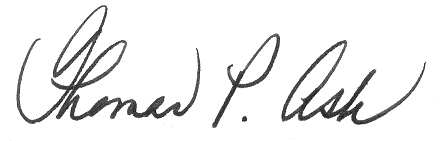 Thomas P. Ash